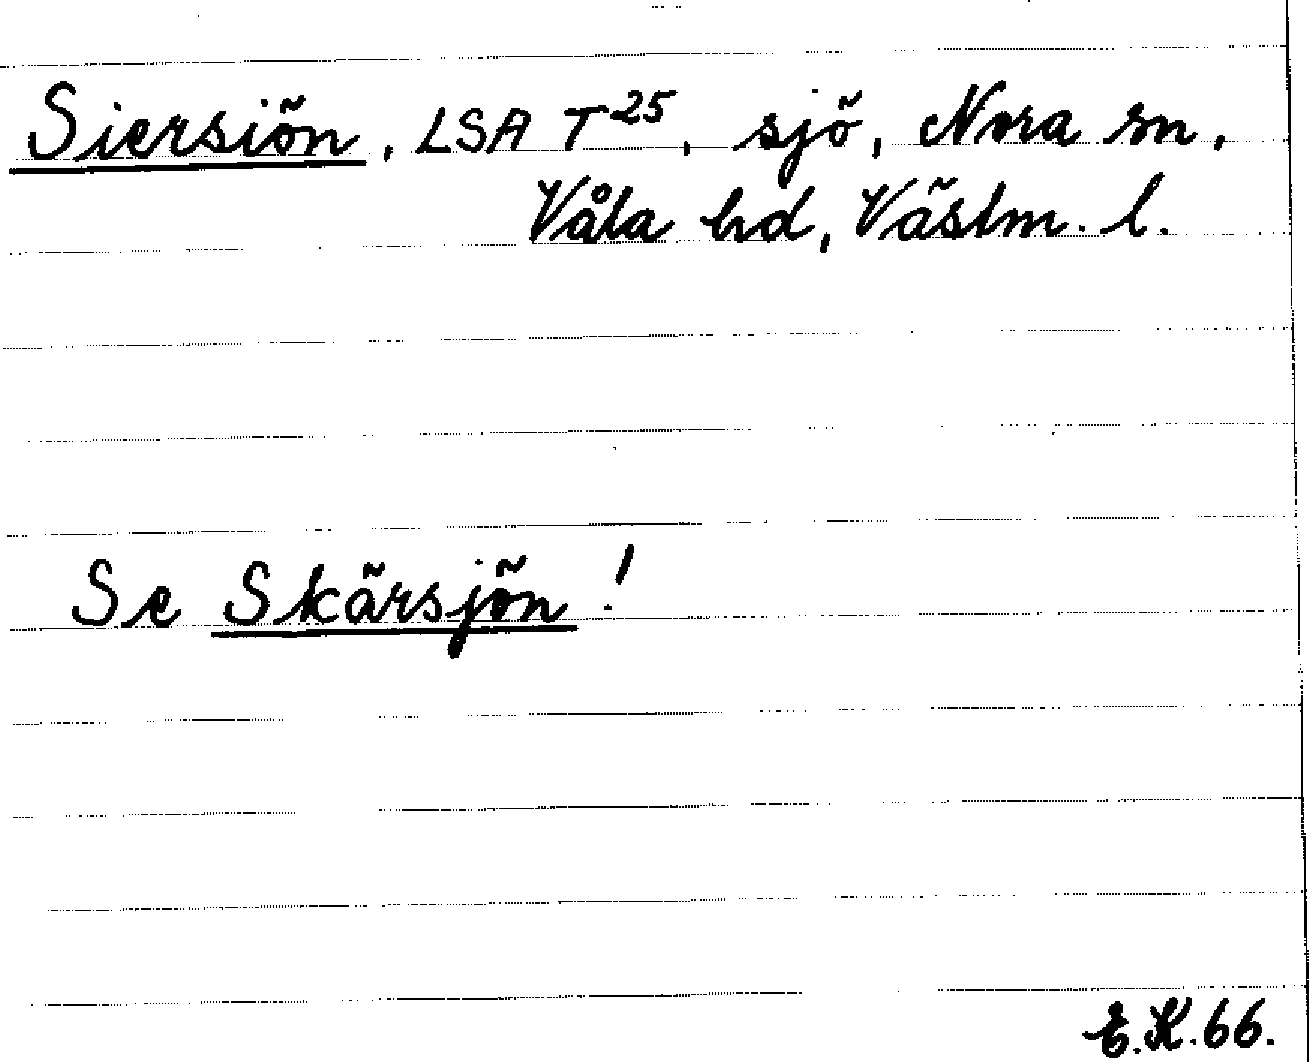 Siersiön, LSA T25, sjö, Nora sn,
Våla hd, Västm. l.
Se Skärsjön!
E.K.66.